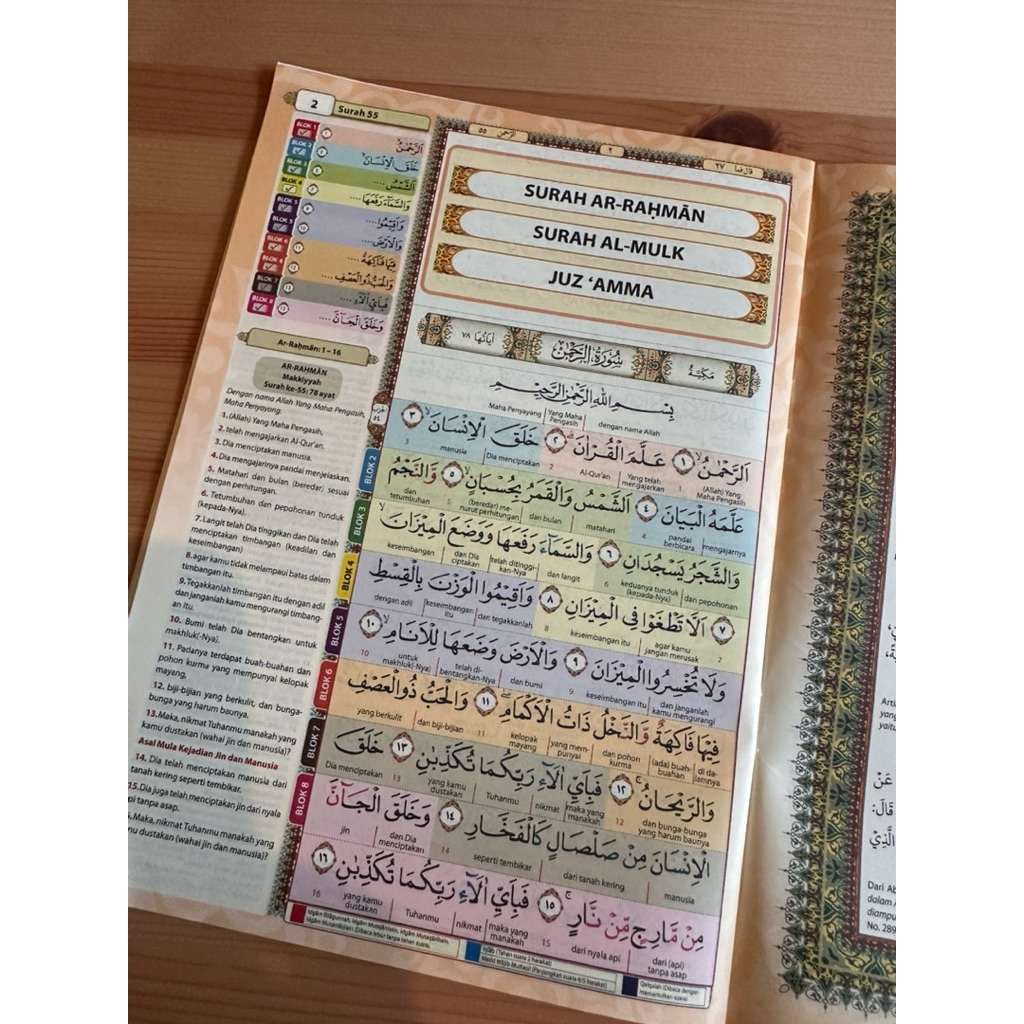 2
Surah 55
BLOK 1
الرَّحْمٰنُ
BLOK 2
خَلَقَ الْإِنْسَانَ
BLOK 3
الشَّمْسُ ....
BLOK 4
وَالسَّمَآءَ رَفَعَهَا ....
BLOK 5
وَأَقِيْمُوا ....
BLOK 5
وَالْأَرْضَ ....
BLOK 6
فِيْهَا فَاكِهَةٌ ....
BLOK 6
وَالْحَبُّ ذُو الْعَصْفِ ....
BLOK 7
فَبِأَيِّ اٰلَآءِ ....
BLOK 8
وَخَلَقَ الْجَآنَّ ....
Ar-Raḥmān: 1 – 16
AR-RAHMĀN
Makkiyyah
Surah ke-55: 78 ayat
Dengan nama Allah Yang Maha Pengasih,
Maha Penyayang.
1. (Allah) Yang Maha Pengasih,
2. telah mengajarkan Al-Qur'an.
3. Dia menciptakan manusia.
4. Dia mengajarinya pandai menjelaskan.
5. Matahari dan bulan (beredar) sesuai
dengan perhitungan.
6. Tetumbuhan dan pepohonan tunduk
(kepada-Nya).
7. Langit telah Dia tinggikan dan Dia telah
menciptakan timbangan (keadilan dan
keseimbangan)
8. agar kamu tidak melampaui batas dalam
timbangan itu.
9. Tegakkanlah timbangan itu dengan adil
dan janganlah kamu mengurangi timbang-
an itu.
10. Bumi telah Dia bentangkan untuk
makhluk(-Nya).
11. Padanya terdapat buah-buahan dan
pohon kurma yang mempunyai kelopak
mayang,
12. biji-bijian yang berkulit, dan bunga-
bunga yang harum baunya.
13. Maka, nikmat Tuhanmu manakah yang
kamu dustakan (wahai jin dan manusia)?
Asal Mula Kejadian Jin dan Manusia
14. Dia telah menciptakan manusia dari
tanah kering seperti tembikar.
15. Dia juga telah menciptakan jin dari nyala
api tanpa asap.
Maka, nikmat Tuhanmu manakah yang
dustakan (wahai jin dan manusia)?
الرحمن ٥٥
٢
قال فما ٢٧
SURAH AR-RAḤMĀN
SURAH AL-MULK
JUZ ‘AMMA
اٰيَاتُهَا ٧٨
سُوْرَةُ الرَّحْمٰنِ
مَكِّيَّةٌ
بِسْمِ اللهِ الرَّحْمٰنِ الرَّحِيْمِ
dengan nama Allah Yang Maha Pengasih Maha Penyayang
الرَّحْمٰنُ ١ عَلَّمَ الْقُرْاٰنَ ٢ خَلَقَ الْإِنْسَانَ ٣
(Allah) Yang Maha Pengasih 1 Yang telah mengajarkan Al-Qur'an 2 Dia menciptakan manusia 3
BLOK 2
عَلَّمَهُ الْبَيَانَ ٤ الشَّمْسُ وَالْقَمَرُ بِحُسْبَانٍ ٥ وَّالنَّجْمُ
mengajarnya pandai berbicara 4 matahari dan bulan (beredar) me-nurut perhitungan 5 dan tetumbuhan
BLOK 3
وَالشَّجَرُ يَسْجُدَانِ ٦ وَالسَّمَآءَ رَفَعَهَا وَوَضَعَ الْمِيْزَانَ
dan pepohonan keduanya tunduk (kepada-Nya) 6 dan langit telah ditinggi-kan-Nya dan Dia ciptakan keseimbangan
BLOK 4
٧ اَلَّا تَطْغَوْا فِى الْمِيْزَانِ ٨ وَاَقِيْمُوا الْوَزْنَ بِالْقِسْطِ
7 agar kamu jangan merusak keseimbangan itu 8 dan tegakkanlah keseimbangan itu dengan adil
BLOK 5
وَلَا تُخْسِرُوا الْمِيْزَانَ ٩ وَالْاَرْضَ وَضَعَهَا لِلْاَنَامِ ١٠
dan janganlah kamu mengurangi keseimbangan itu 9 dan bumi telah di-bentangkan-Nya untuk makhluk(-Nya) 10
BLOK 6
فِيْهَا فَاكِهَةٌ وَّالنَّخْلُ ذَاتُ الْاَكْمَامِ ١١ وَالْحَبُّ ذُو الْعَصْفِ
di da-lamnya (ada) buah-buahan dan pohon kurma yang mem-punyai kelopak mayang 11 dan biji-bijian yang berkulit
BLOK 7
وَالرَّيْحَانُ ١٢ فَبِاَيِّ اٰلَآءِ رَبِّكُمَا تُكَذِّبٰنِ ١٣ خَلَقَ
dan bunga-bunga yang harum baunya 12 maka yang manakah nikmat Tuhanmu yang kamu dustakan 13 Dia menciptakan
BLOK 8
الْاِنْسَانَ مِنْ صَلْصَالٍ كَالْفَخَّارِ ١٤ وَخَلَقَ الْجَآنَّ
manusia dari tanah kering seperti tembikar 14 dan Dia menciptakan jin
مِنْ مَّارِجٍ مِّنْ نَّارٍ ١٥ فَبِاَيِّ اٰلَآءِ رَبِّكُمَا تُكَذِّبٰنِ ١٦
dari (api) tanpa asap dari nyala api 15 maka yang manakah nikmat Tuhanmu yang kamu dustakan 16
Qalqalah (Dibaca dengan
memantulkan suara)
عَنْ
قَالَ:
الَّذِيْ
Dari Ab
dalam
diampu
No. 289